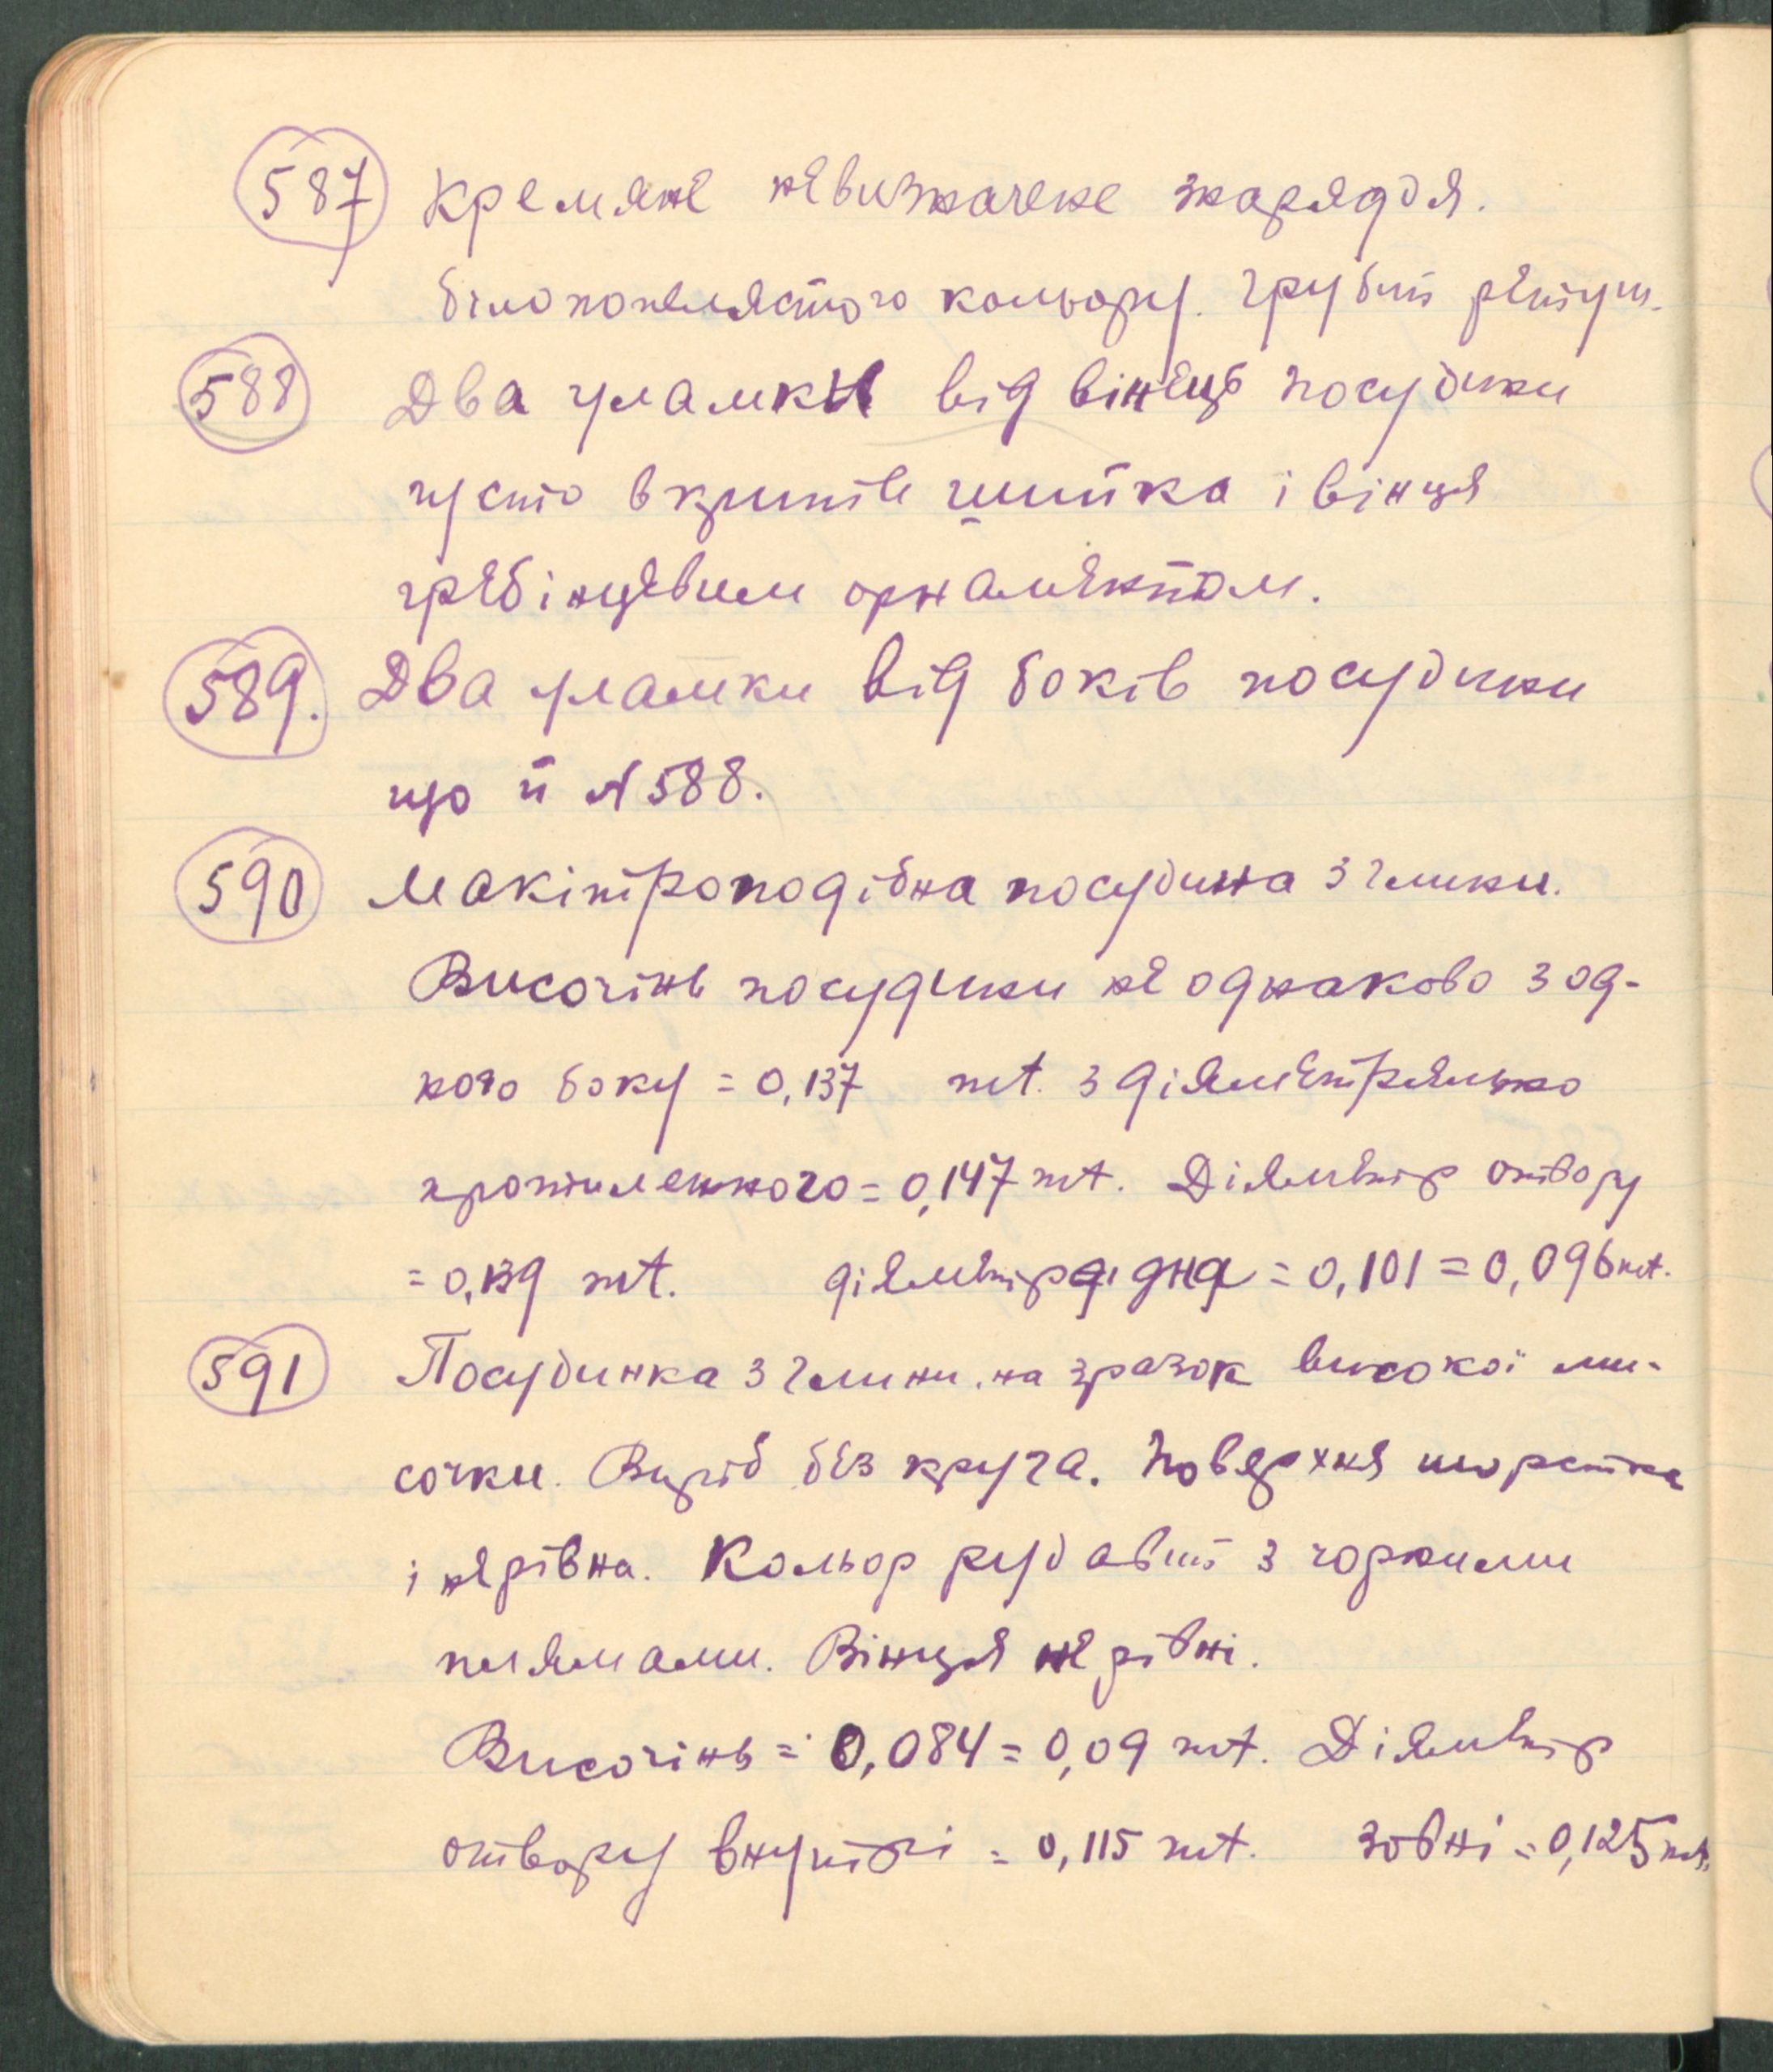 587 Кремяне невизначене знаряддя.
білопопелястого кольору. Грубий ретуш.
588 Два уламки від вінець посудини
густо вкритв шийка і вінця
гребінцевим орнаментом.
589. Два уламки від боків посудини
що й № 588.
590 Макітроподібна посудина з глини.
Височінь посудини не однаково з од-
ного боку = 0,137 mt. з діяметрально
протилежного = 0,147 mt. Діяметр отвору
= 0,139 mt. діяметр дна = 0,101 = 0,096 mt.
591 Посудинка з глини на зразок високої ми-
сочки. Виріб без круга. Поверхня шорстка
і нерівна. Кольор рудавий з чорними
плямами. Вінця не рівні.
Височінь = 0,084 = 0,09 mt. Діяметр
отвору внутрі = 0,115 mt. зовні = 0,125 mt.